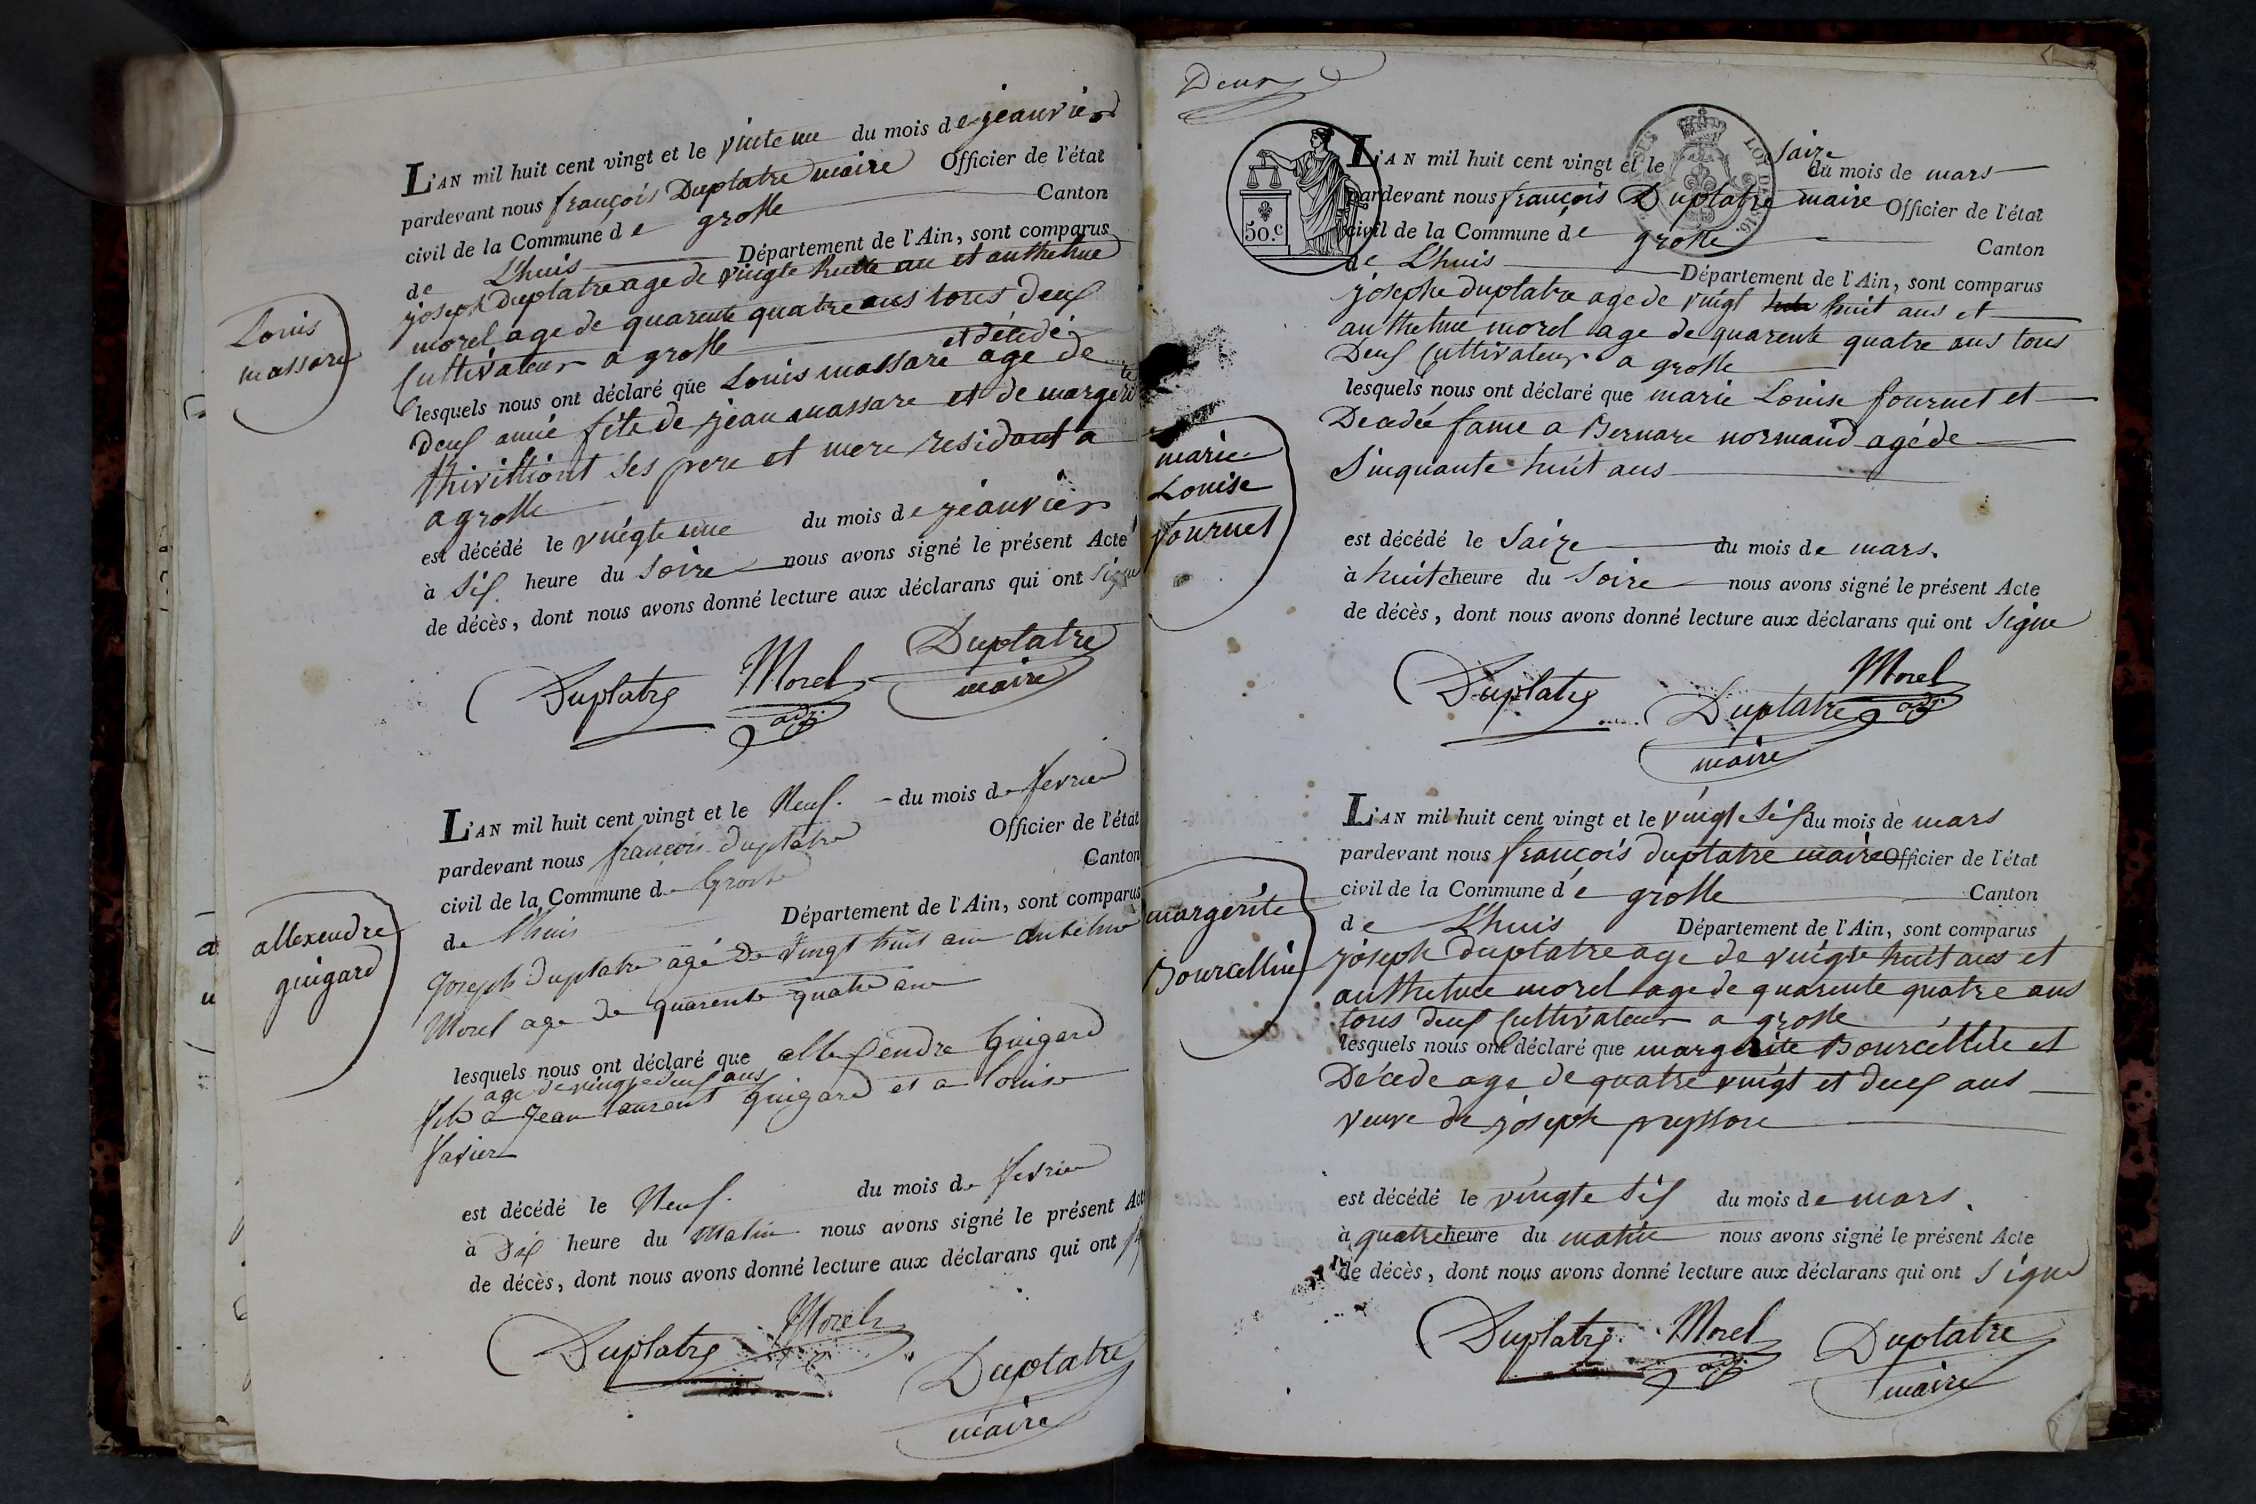 Louis
massare
L'AN mil huit cent vingt et le vinte une du mois de jeanvier
pardevant nous françois Duplatre maire Officier de l'état
civil de la Commune de grosle Canton
de L'huis Département de l'Ain, sont comparus
joseph duplatre age de vingte huite an et anthelme
morel age de quarente quatre ans tous deuf
Cultivateur a grosle et décedé
lesquels nous ont déclaré que Louis massare age de
deuf anné fils de jean massare et de margerite
thivilliont ses pere et mere residant a
a grosle
est décédé le vuégte une du mois de jéanvier
à sif heure du soire nous avons signé le présent Acte
de décès, dont nous avons donné lecture aux déclarans qui ont signe
Duplatre Morel adj. Duplatre
maire
allexendre
guigard
L'AN mil huit cent vingt et le Neuf. du mois de fevrier
pardevant nous françois duplatre Officier de l'état
civil de la Commune de Grosle Canton
de l'huis Département de l'Ain, sont comparus
Joseph Duplatre agé De vingt huit an antelme
Morel age De quarente quatre ans
lesquels nous ont déclaré que allefendre Guigard
age de vingte deuf ans
fils a Jean laurent Guigard et a louise
favier
est décédé le Neuf. du mois de fevrier
à Dif heure du Matin nous avons signé le présent Acte
de décès, dont nous avons donné lecture aux déclarans qui ont
Duplatre Morel
Duplatre
maire
Deux
50.c
LOI DE 1816
marie
Louise
fournet
L'AN mil huit cent vingt et le saize du mois de mars
pardevant nous françois Duplatre maire Officier de l'état
civil de la Commune de grosle Canton
de L'huis Département de l'Ain, sont comparus
josephe duplatre age de vuigt huit ans et
anthelme morel age de quarente quatre ans tous
Deuf Cultivateur a grosle
lesquels nous ont déclaré que marie Louise fournet et
Decedée fame a Bernare normand agé de
sinquante huit ans
est décédé le saize du mois de mars.
à huit heure du soire nous avons signé le présent Acte
de décès, dont nous avons donné lecture aux déclarans qui ont signe
Duplatre Morel
Duplatre adj.
maire
margerite
Bourcellin
L'AN mil huit cent vingt et le vuigt sif du mois de mars
pardevant nous françois duplatre maire Officier de l'état
civil de la Commune de grosle Canton
de L'huis Département de l'Ain, sont comparus
joseph duplatre age de vuigte huit ans et
anthelme morel age de quarente quatre ans
tous deuf Cultivateur a grosle
lesquels nous ont déclaré que margerite Bourcellin et
Décede age de quatre vuigt et deuf ans
veuve de joseph
est décédé le vingte sif du mois de mars.
à quatre heure du matin nous avons signé le présent Acte
de décès, dont nous avons donné lecture aux déclarans qui ont signe
Duplatre Morel adj. Duplatre
maire